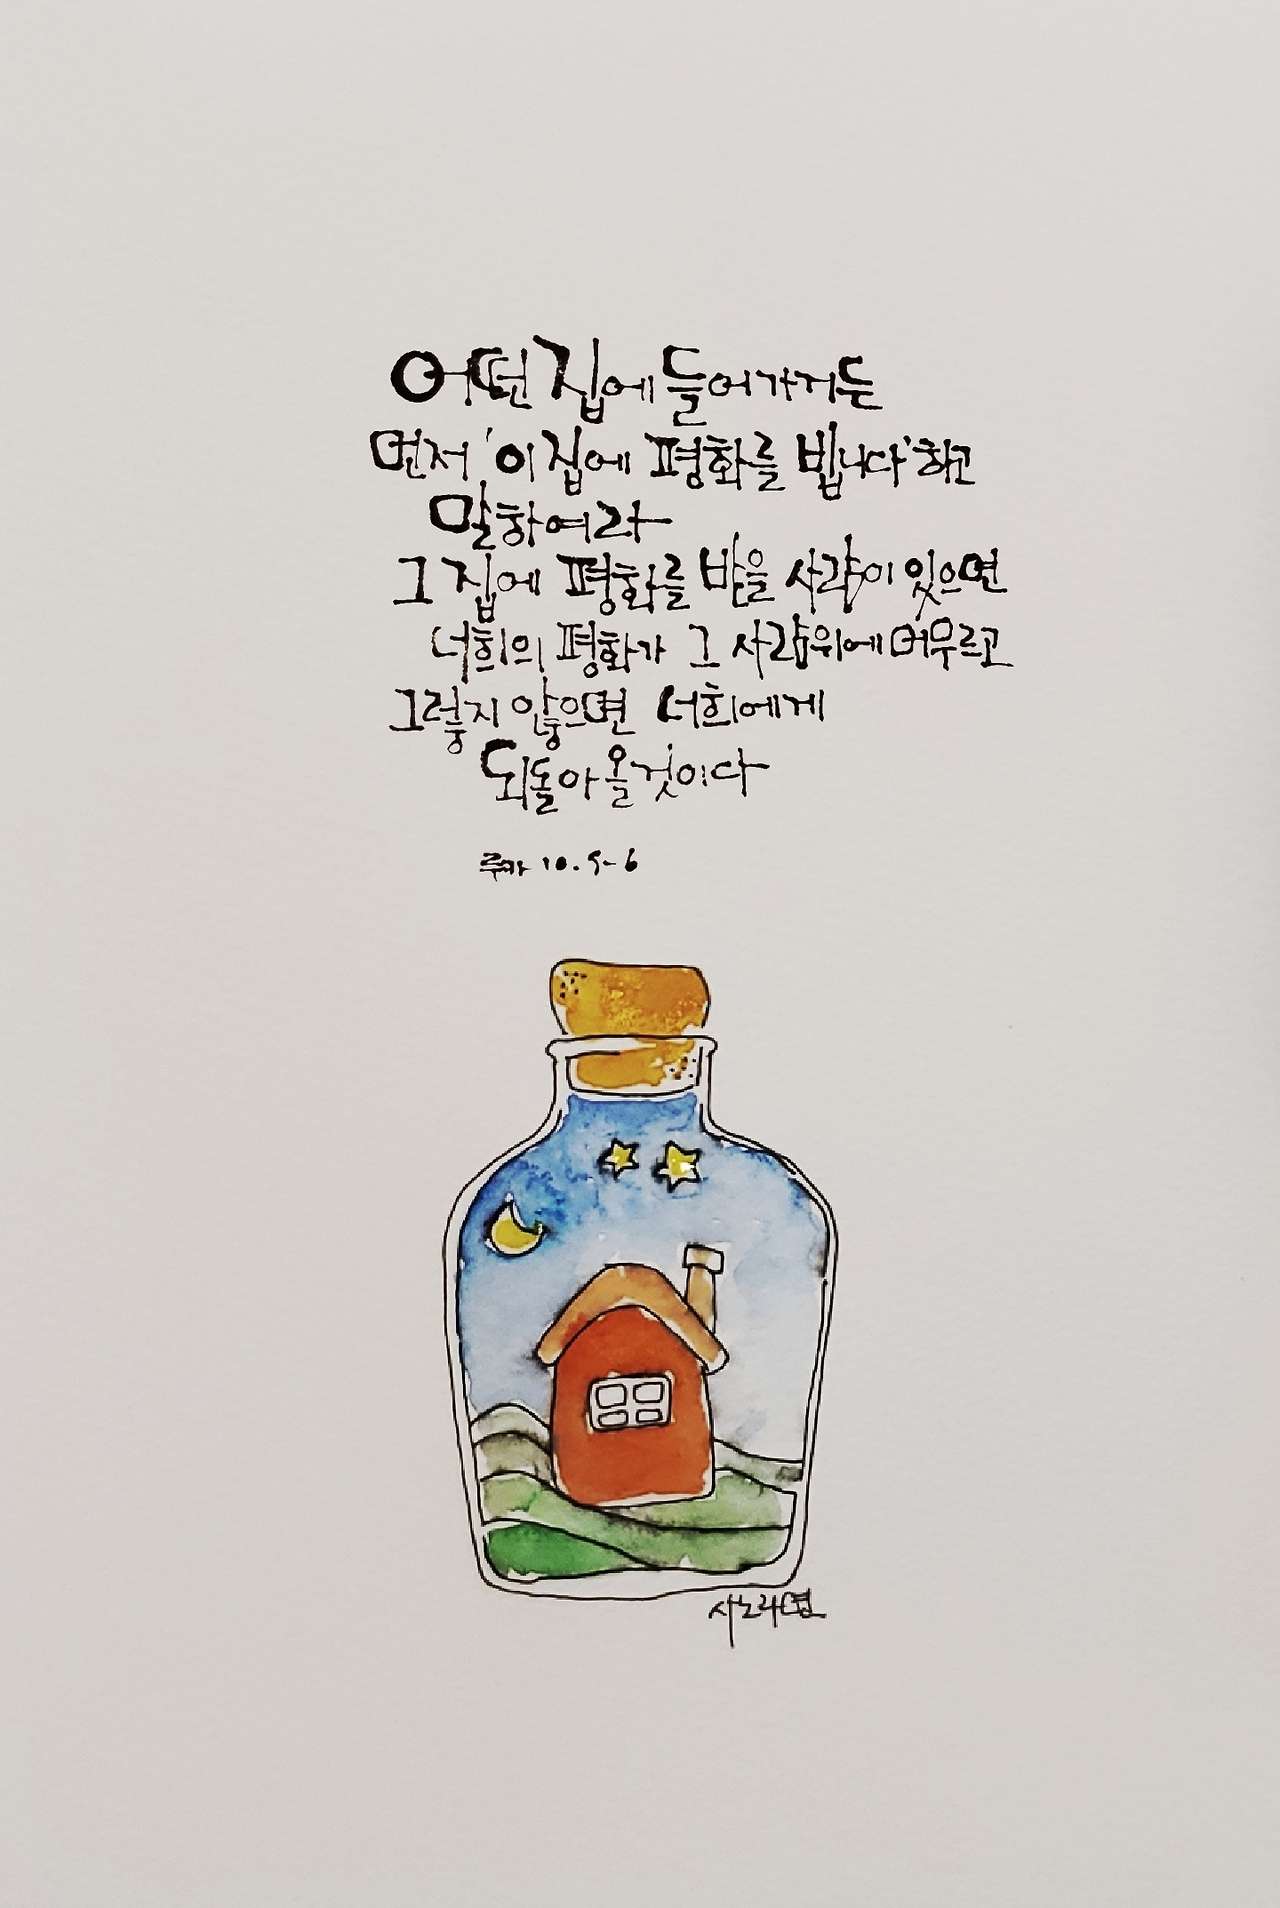 어떤 집에 들어가거든
먼저 '이 집에 평화를 빕니다' 하고
말하여라
그 집에 평화를 받을 사람이 있으면
너희의 평화가 그 사람 위에 머무르고
그렇지 않으면 너희에게
되돌아 올 것이다
루카 10. 5-6